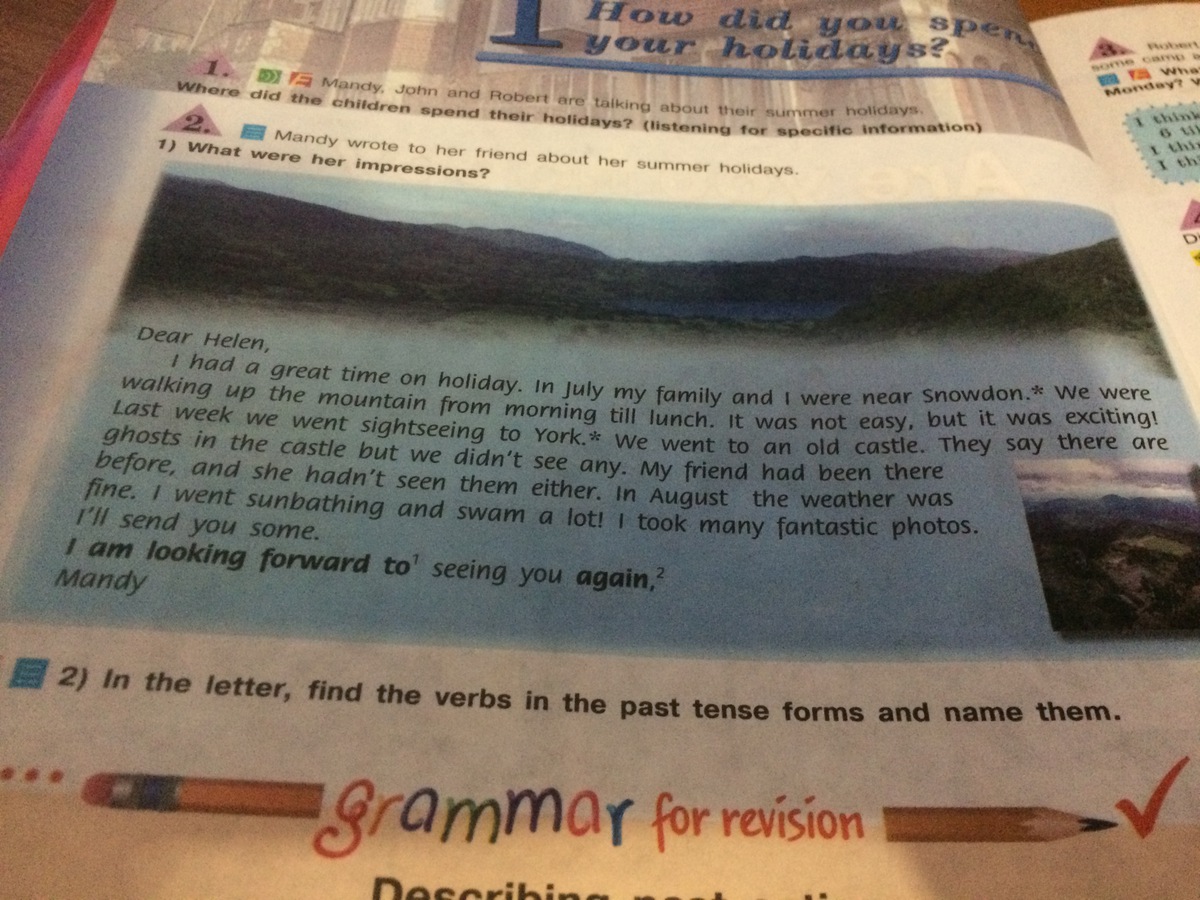 How did you spen
your holidays?
1. Mandy, John and Robert are talking about their summer holidays.
Where did the children spend their holidays? (listening for specific information)
2. Mandy wrote to her friend about her summer holidays.
1) What were her impressions?
Dear Helen,
I had a great time on holiday. In July my family and I were near Snowdon.* We were
walking up the mountain from morning till lunch. It was not easy, but it was exciting!
Last week we went sightseeing to York.* We went to an old castle. They say there are
ghosts in the castle but we didn't see any. My friend had been there
before, and she hadn't seen them either. In August the weather was
fine. I went sunbathing and swam a lot! I took many fantastic photos.
I'll send you some.
I am looking forward to¹ seeing you again,²
Mandy
2) In the letter, find the verbs in the past tense forms and name them.
grammar for revision
Describing past
3. Robert
some camp
Wha
Monday?
I think
6
I thin
I th